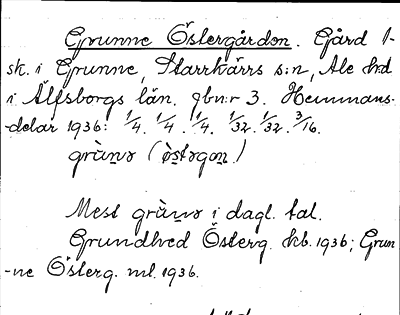 Grunne Östergården. Gård 1-
sk. i Grunne, Starrkärrs s:n, Ale hd
i Älfsborgs län. Jbn:r 3. Hemmans-
-delar 1936: 1/4. 1/4. 1/4. 1/32. 1/32. 3/16.
grùnə (òstəgɒn.)
Mest grùnə i dagl. tal.
Grundhed Österg. kb. 1936; Grun
-ne Österg. ml. 1936.